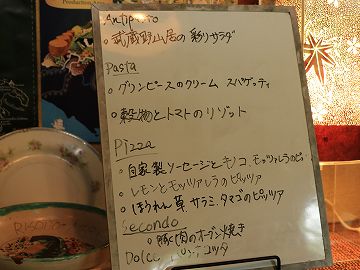 Antipasto
・武蔵野山居の彩りサラダ
Pasta
・グリンピースのクリーム スパゲッティ
・穀物とトマトのリゾット
Pizza
・自家製ソーセージとキノコ、モッツァレラのピ
・レモンとモッツァレラのピッツァ
・ほうれん草 サラミ タマゴのピッツァ
Secondo
・豚肉のオーブン焼き
Dolce
RISOTTO
Production